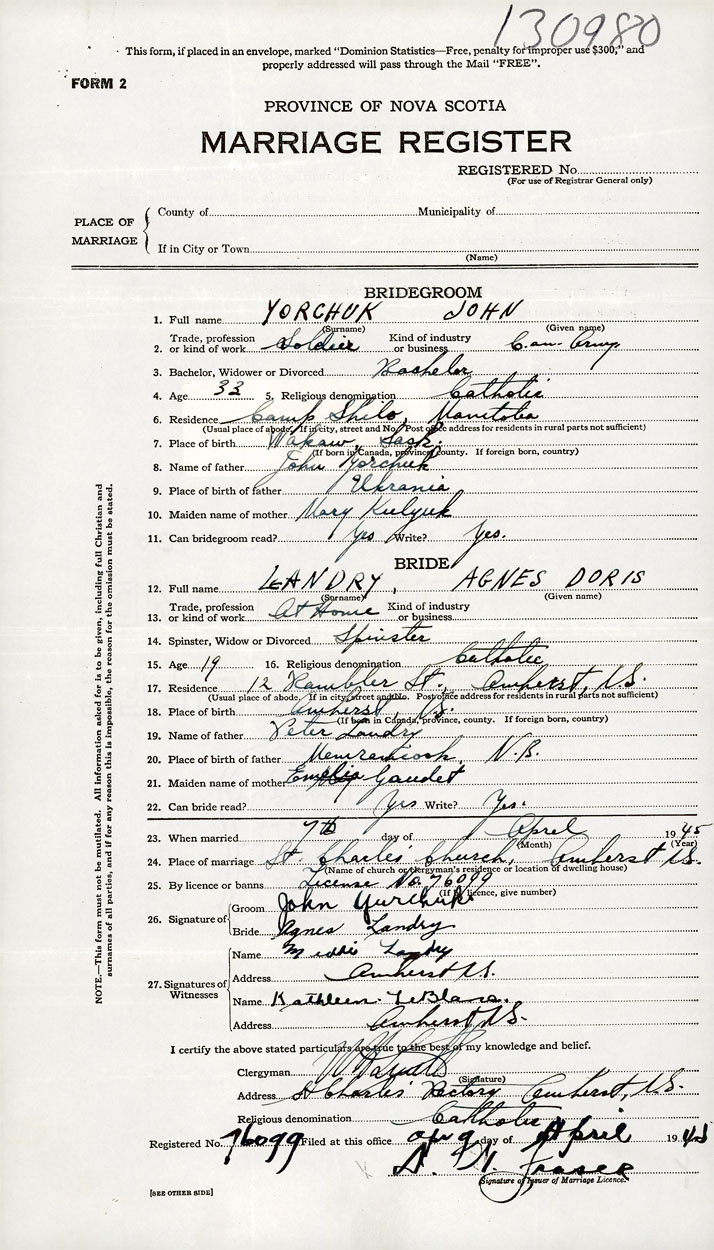 130980
This form, if placed in an envelope, marked "Dominion Statistics—Free, penalty for improper use $300," and
properly addressed will pass through the Mail "FREE".
FORM 2
PROVINCE OF NOVA SCOTIA
MARRIAGE REGISTER
REGISTERED No.
(For use of Registrar General only)
PLACE OF MARRIAGE
County of Municipality of
If in City or Town
(Name)
BRIDEGROOM
1. Full name YORCHUK JOHN
(Surname) (Given name)
2. Trade, profession or kind of work Soldier Kind of industry or business Can. Army
3. Bachelor, Widower or Divorced Bachelor
4. Age 33 5. Religious denomination Catholic
6. Residence Camp Shilo, Manitoba
(Usual place of abode. If in city, street and No. Post office address for residents in rural parts not sufficient)
7. Place of birth Wakaw, Sask.
(If born in Canada, province, county. If foreign born, country)
8. Name of father John Yorchuk
9. Place of birth of father Ukrania
10. Maiden name of mother Mary Kulyuk
11. Can bridegroom read? Yes Write? Yes.
BRIDE
12. Full name LANDRY, AGNES DORIS
(Surname) (Given name)
13. Trade, profession or kind of work At Home Kind of industry or business
14. Spinster, Widow or Divorced Spinster
15. Age 19 16. Religious denomination Catholic
17. Residence 12 Rambler St., Amherst, N.S.
(Usual place of abode. If in city, street and No. Post office address for residents in rural parts not sufficient)
18. Place of birth Amherst, N.S.
(If born in Canada, province, county. If foreign born, country)
19. Name of father Peter Landry
20. Place of birth of father Memramcook, N.B.
21. Maiden name of mother Gaudet
22. Can bride read? Yes Write? Yes.
23. When married 7th day of April 1945
(Month) (Year)
24. Place of marriage St. Charles Church, Amherst N.S.
(Name of church or clergyman's residence or location of dwelling house)
25. By licence or banns License No. 76099
(If by licence, give number)
26. Signature of
Groom John Yurchuk
Bride Agnes Landry
27. Signatures of Witnesses
Name Landry
Address Amherst N.S.
Name Kathleen LeBlanc
Address Amherst N.S.
I certify the above stated particulars are true to the best of my knowledge and belief.
Clergyman
(Signature)
Address St Charles Rectory Amherst, N.S.
Religious denomination Catholic
Registered No. 76099 Filed at this office 9 day of April 1945
Fraser
Signature of Issuer of Marriage Licence.
[SEE OTHER SIDE]
NOTE.—This form must not be mutilated. All information asked for is to be given, including full Christian and
surnames of all parties, and if for any reason this is impossible, the reason for the omission must be stated.